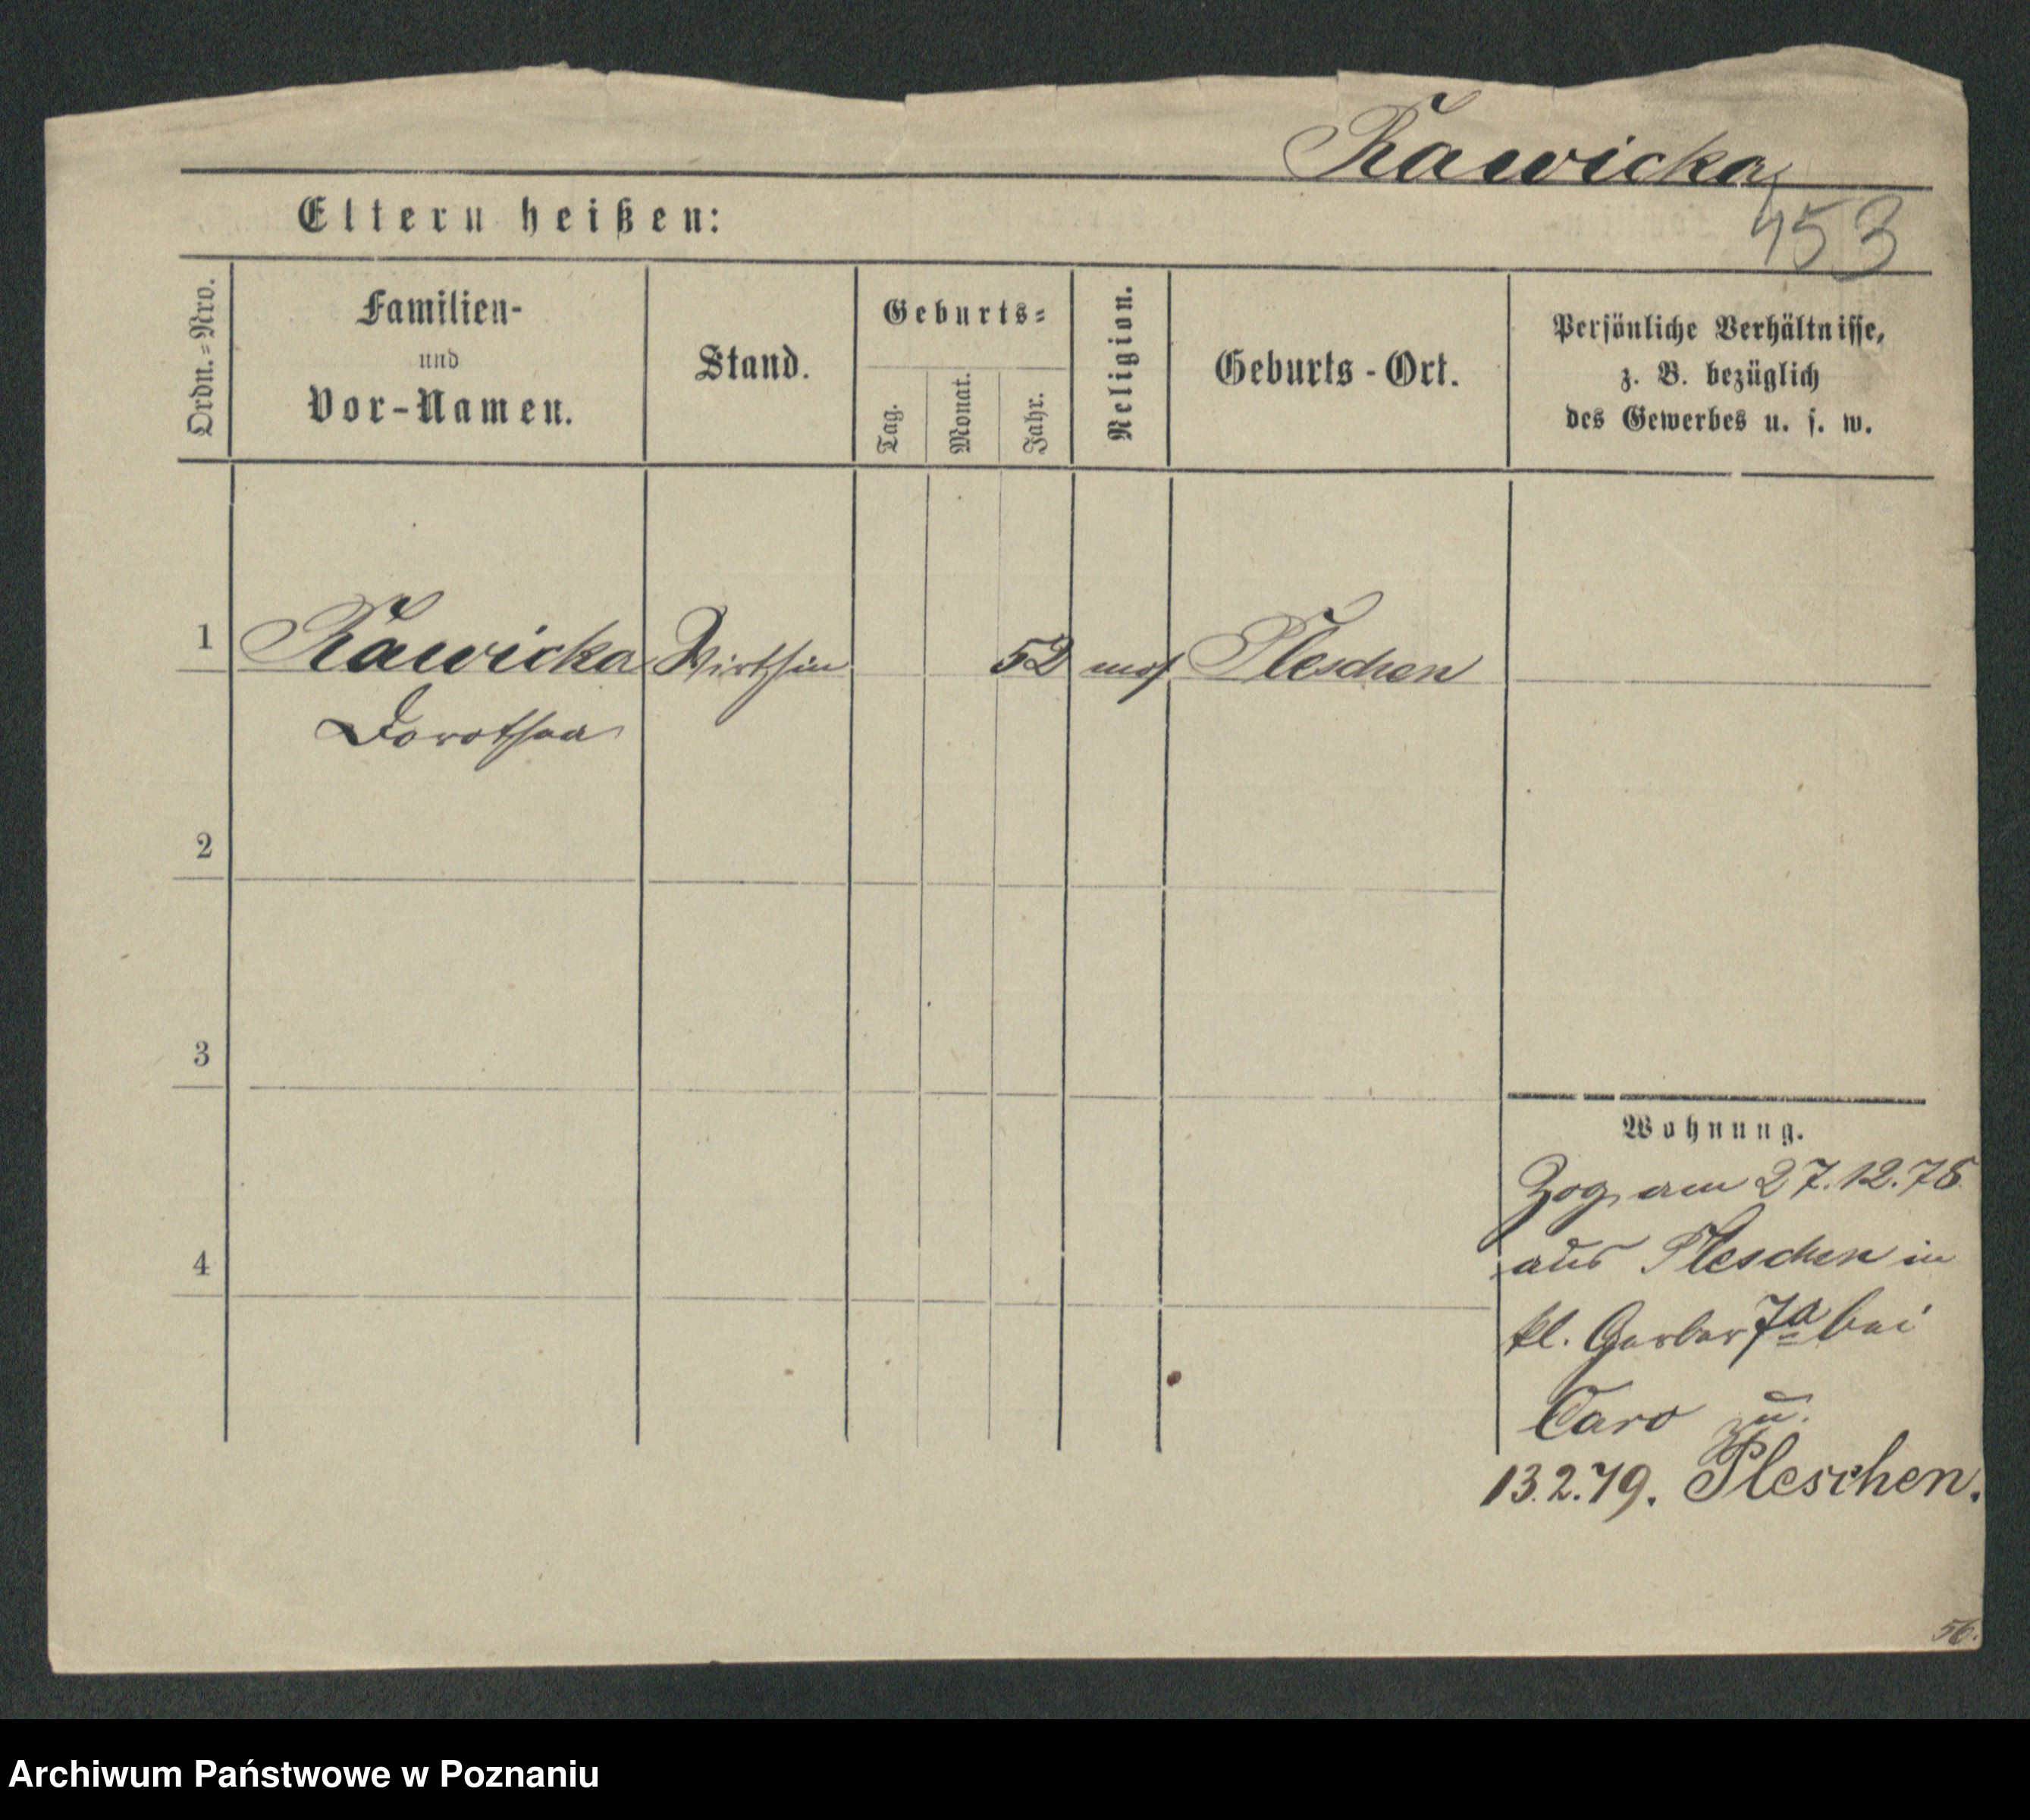 Rawicka
453
Eltern heißen:
Ordn.=Nro.
Familien-
und
Vor-Namen.
Stand.
Geburts=
Tag.
Monat.
Jahr.
Religion.
Geburts-Ort.
Persönliche Verhältnisse,
z. B. bezüglich
des Gewerbes u. s. w.
1 Rawicka Wirthin 52 mos. Pleschen
Dorothea
2
3
4
Wohnung.
Zog am 27.12.78
aus Pleschen in
kl. Gerber 7a bei
Caro zu.
13.2.79. Pleschen.
56.
Archiwum Państwowe w Poznaniu